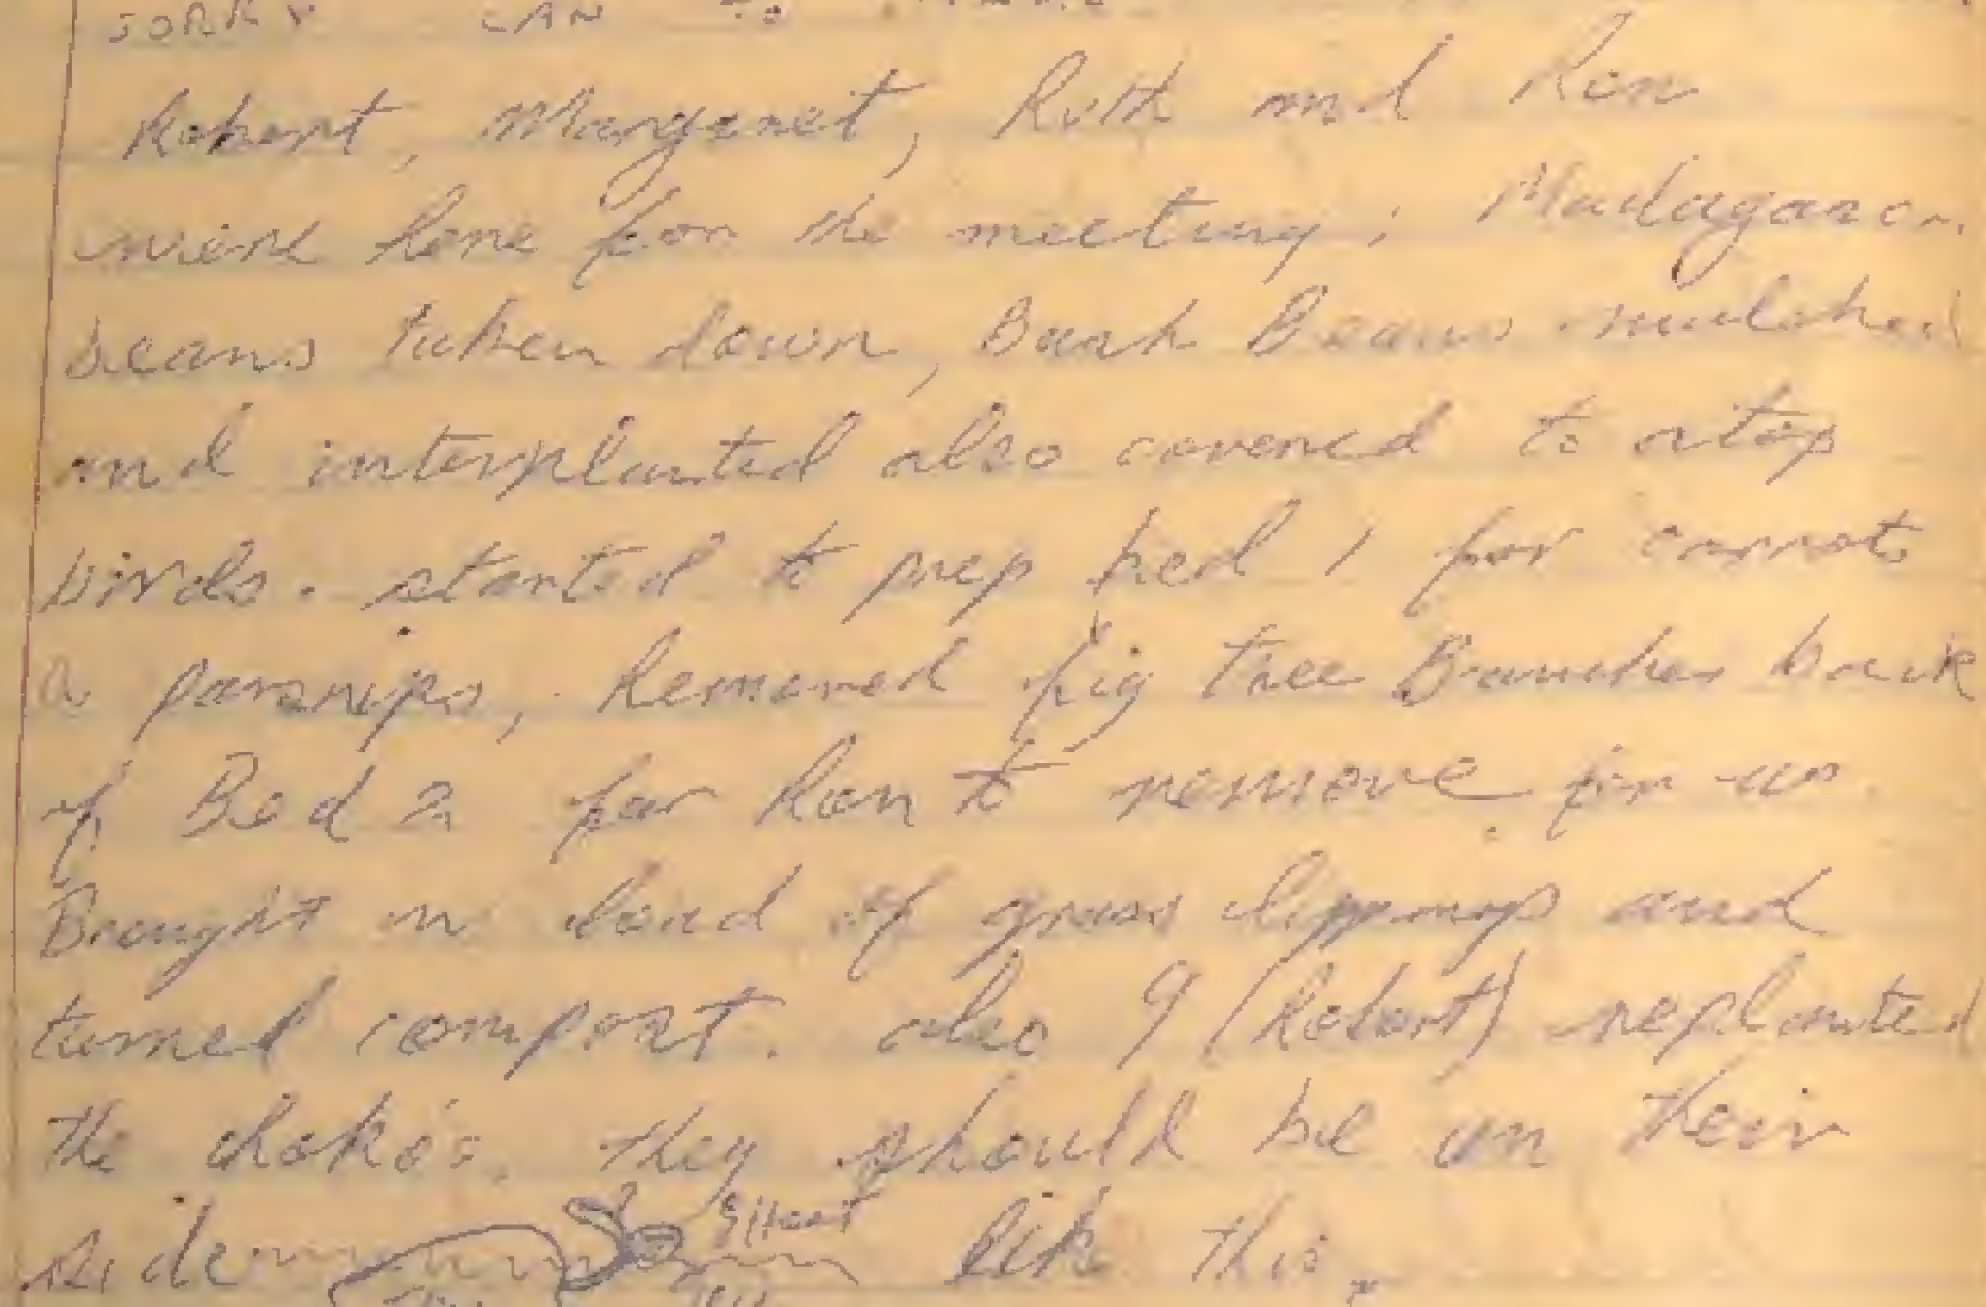 SORRY CAN
Robert, Margaret, Ruth and Ron
were here for the meeting; Madagascar
beans taken down, Bush Beans mulched
and interplanted also covered to stop
birds. started to prep bed 1 for carrots
& parsnips, Removed fig tree Branches back
of Bed 2 for Ron to remove for us.
Brought in load of grass clippings and
turned compost. also I (Robert) replanted
the choko's. they should be on their
side SHOOT like this.